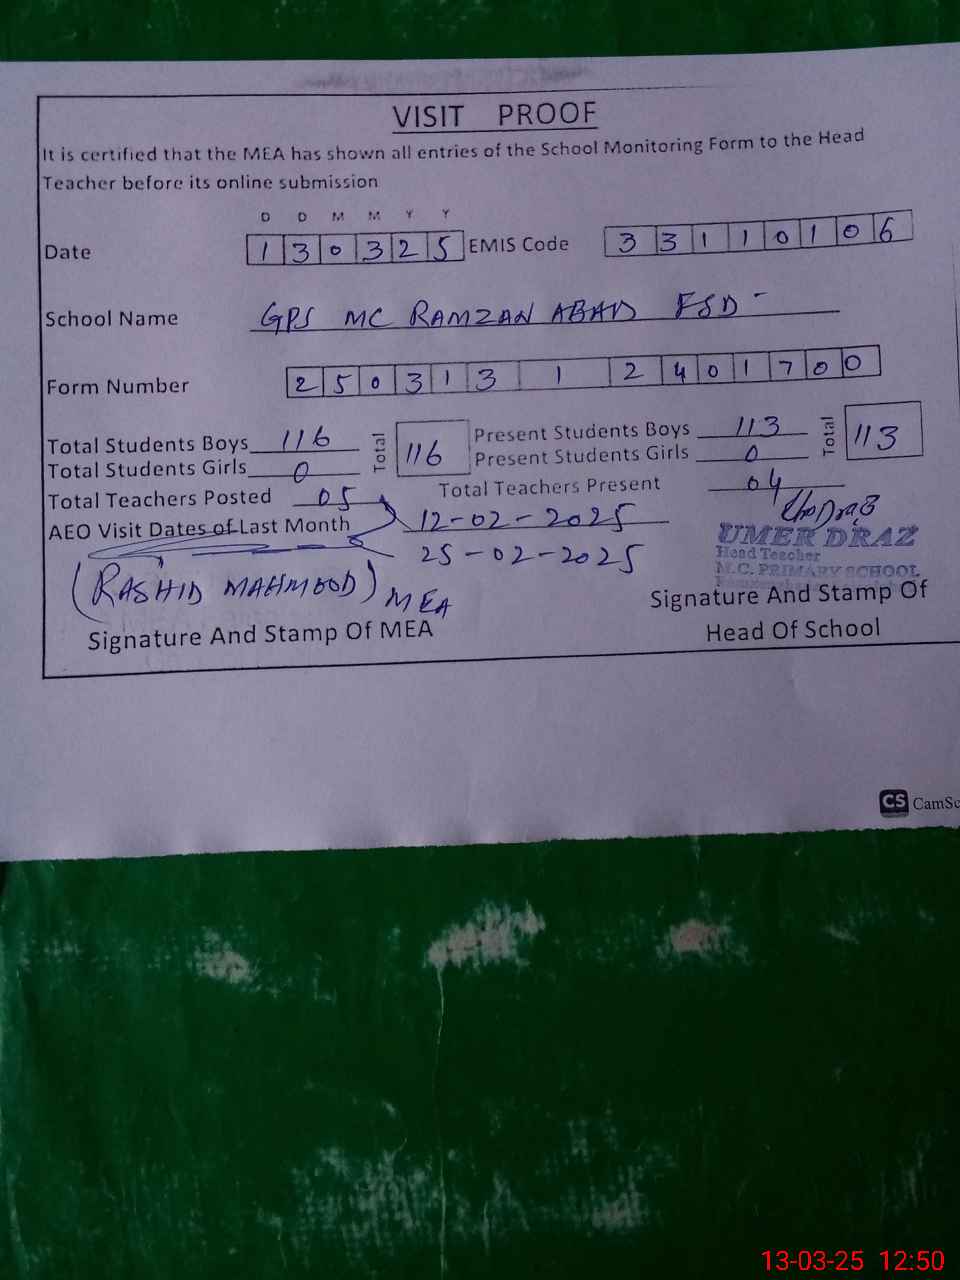 VISIT PROOF
It is certified that the MEA has shown all entries of the School Monitoring Form to the Head
Teacher before its online submission
D D M M Y Y
Date 1 3 0 3 2 5 EMIS Code 3 3 1 1 0 1 0 6
School Name GPS MC RAMZAN ABAD FSD -
Form Number 2 5 0 3 1 3 1 2 4 0 1 7 0 0
Total Students Boys 116 Total 116 Present Students Boys 113 Total 113
Total Students Girls 0 Present Students Girls 0
Total Teachers Posted 05 Total Teachers Present 04
AEO Visit Dates of Last Month 12-02-2025
25-02-2025
UMER DRAZ
Head Teacher
M.C. PRIMARY SCHOOL
(RASHID MAHMOOD) MEA
Signature And Stamp Of MEA
Signature And Stamp Of
Head Of School
CS CamSc
13-03-25 12:50